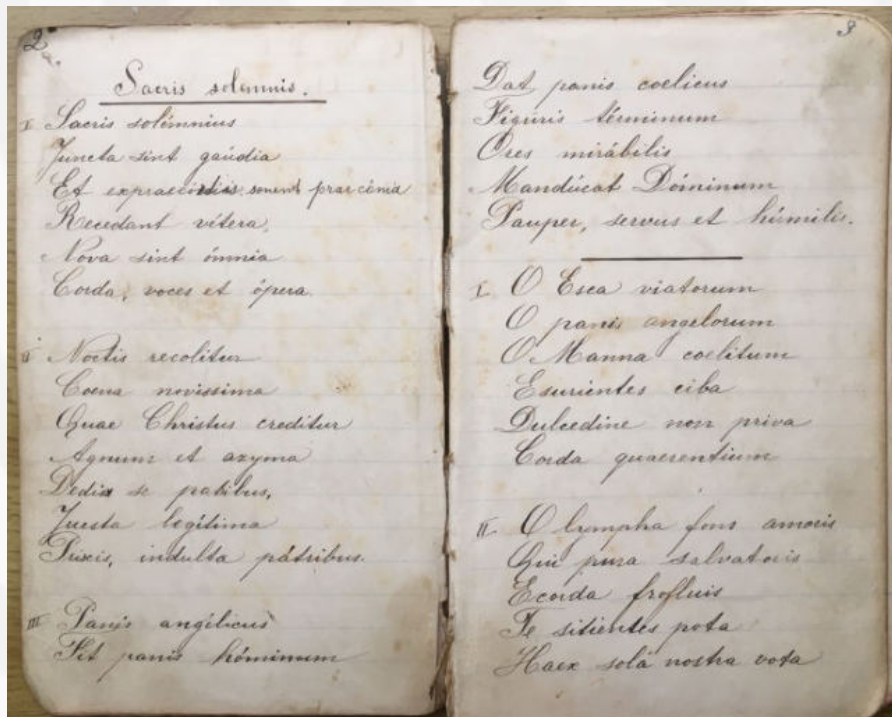 2
Sacris solemnis.
I Sacris solémnius
Juncta sint gaúdia
Et expraecórdiis sonent praecónia
Recedant vétera,
Nova sint ómnia
Corda, voces et ópera.
II Noctis recolitur
Coena novissima
Quae Christus creditur
Agnum et azyma
Dedis se patibus,
Juesta legítima
Prixis, indulta pátribus.
III Panis angélicus
Fit panis hóminum
3
Dat panis coelicus
Figúris términum
Ores mirábilis
Mandúcat Dóminum
Pauper, servus et húmilis.
I. O Esca viatorum
O panis angelorum
O Manna coelitum
Esurientes ciba
Dulcedine non priva
Corda quaerentium
II. O lympha fons amoris
Qui pura salvatoris
Ecorda profluis
Te sitientes pota
Haex solá nostra vota